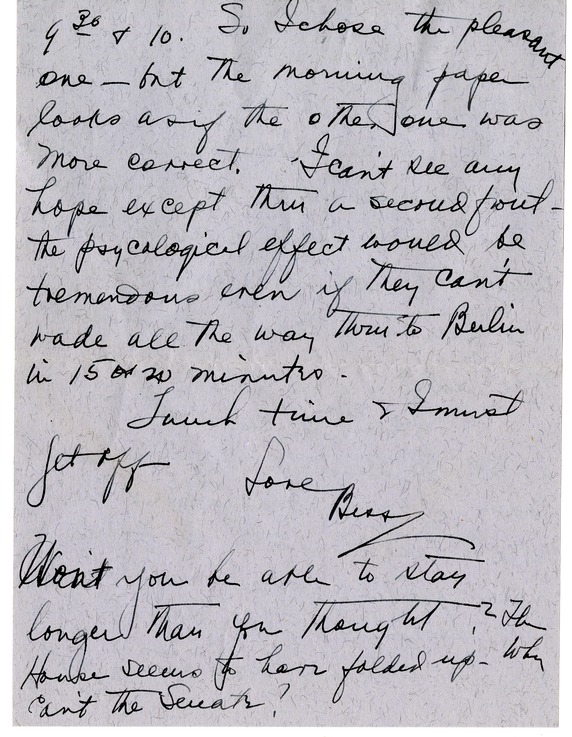 9 30 & 10. So I chose the pleasant
one - but the morning paper
looks as if the other one was
more correct. I can't see any
hope except thru a second front -
the psycological effect would be
tremendous even if they can't
wade all the way thru to Berlin
in 15 or 20 minutes.
Lunch time & I must
get off
Love
Bess
Won't you be able to stay
longer than you thought? The
House seems to have folded up - Why
can't the Senate?